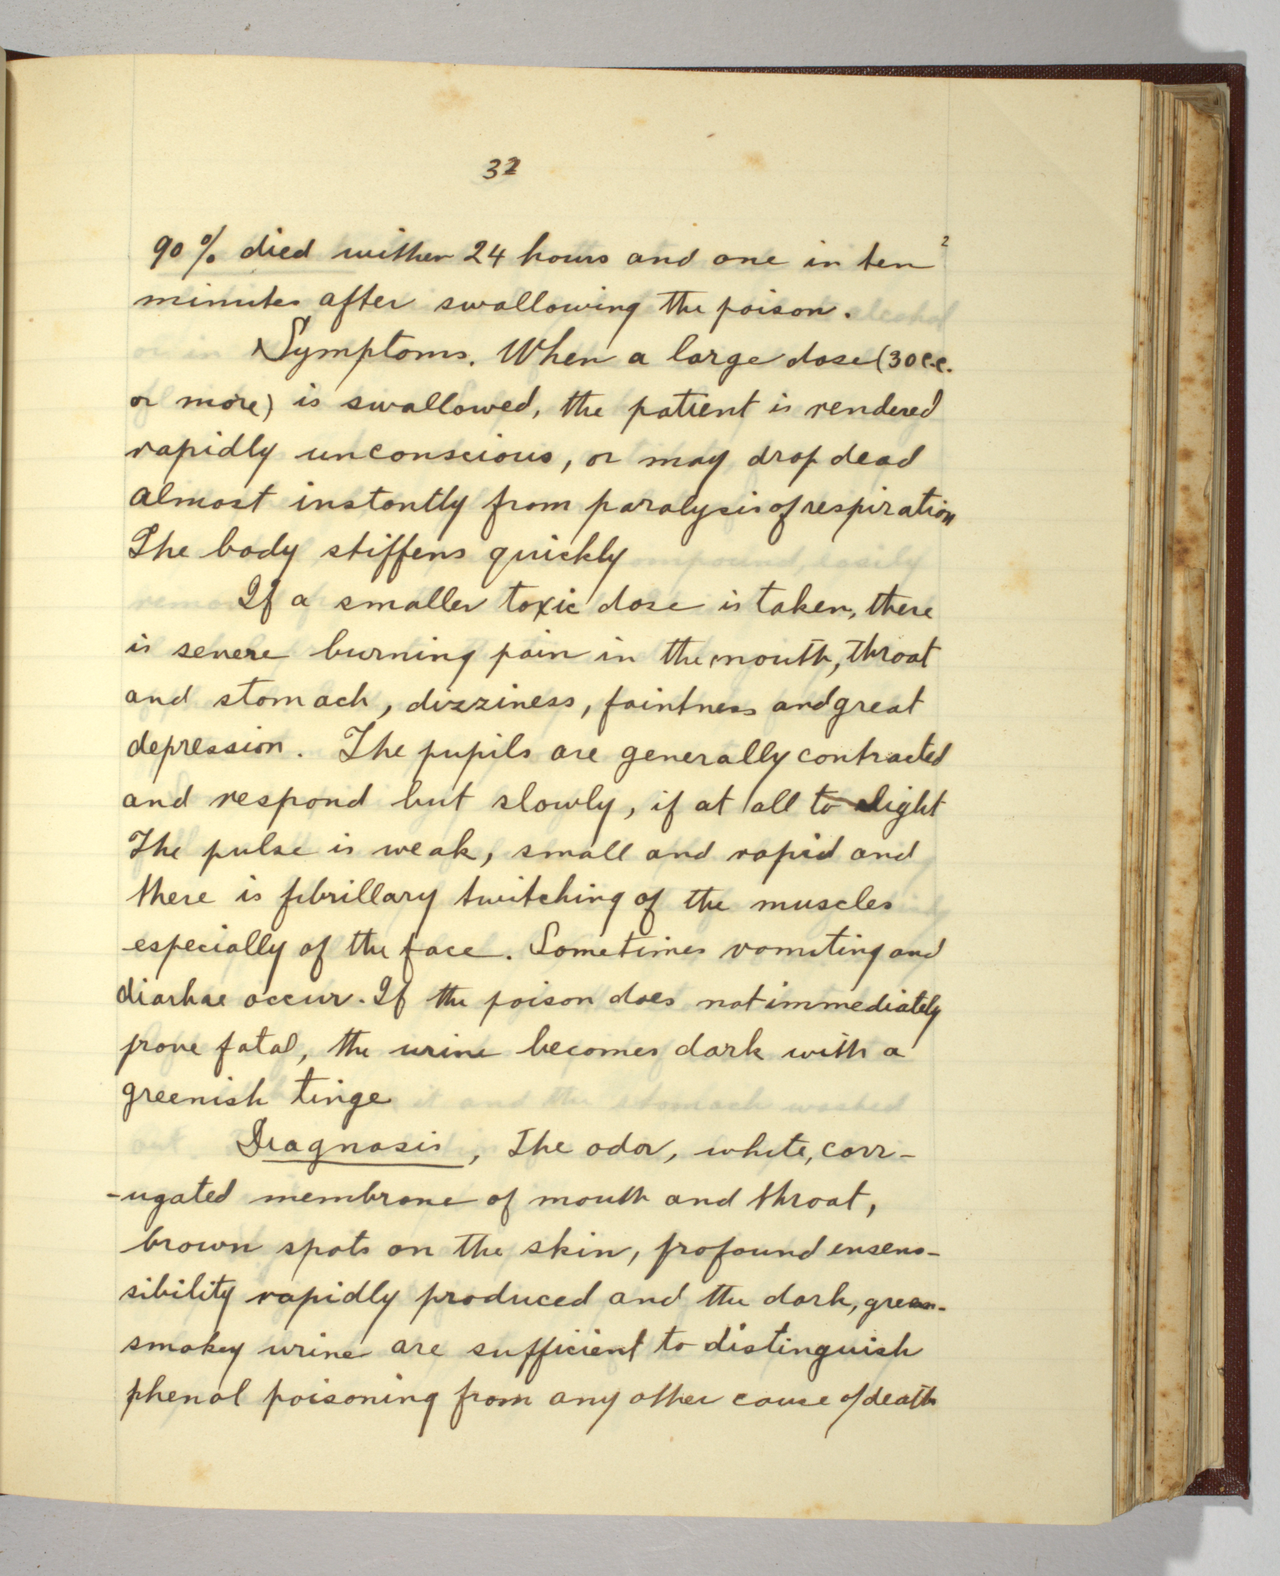 32
90% died within 24 hours and one in ten 2
minutes after swallowing the poison.
Symptoms. When a large dose (30 c.c.
or more) is swallowed, the patient is rendered
rapidly unconscious, or may drop dead
almost instantly from paralysis of respiration
The body stiffens quickly
If a smaller toxic dose is taken, there
is severe burning pain in the mouth, throat
and stomach, dizziness, faintness and great
depression. The pupils are generally contracted
and respond but slowly, if at all to light
The pulse is weak, small and rapid and
there is fibrillary twitching of the muscles
especially of the face. Sometimes vomiting and
diarhae occur. If the poison does not immediately
prove fatal, the urine becomes dark with a
greenish tinge
Diagnosis, The odor, white, corr-
-ugated membrane of mouth and throat,
brown spots on the skin, profound insens-
sibility rapidly produced and the dark, green-
smokey urine are sufficient to distinguish
phenol poisoning from any other cause of death